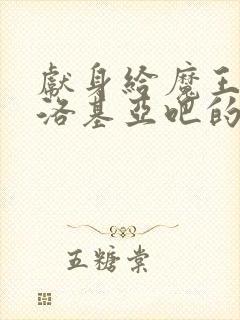 獻身給魔王
洛基亞吧的
五糖棠